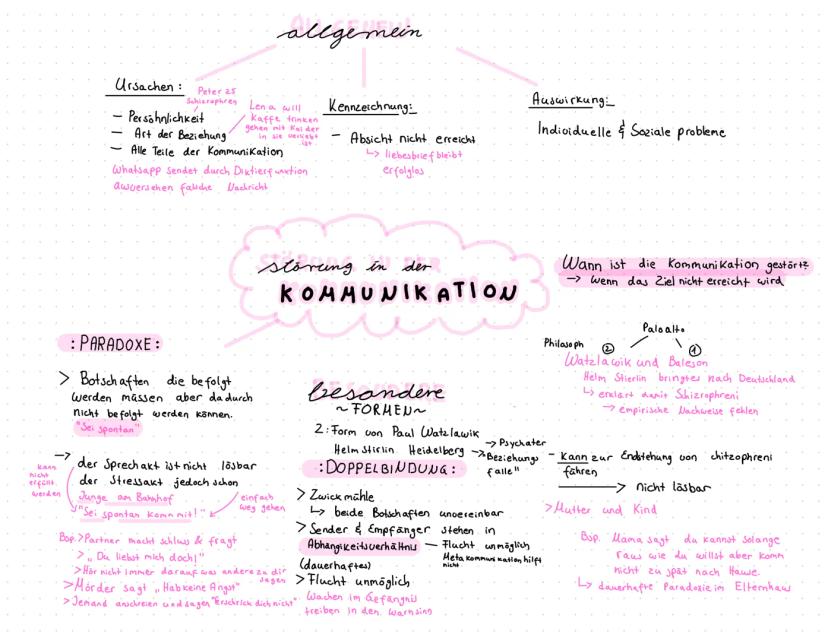 allgemein
Ursachen:
Peter 25
Schizophren
– Persöhnlichkeit
– Art der Beziehung
– Alle Teile der Kommunikation
Lena will
Kaffe trinken
gehen mit Kai der
in sie verliebt
ist.
Whatsapp sendet durch Diktierfunktion
ausversehen falsche Nachricht
Kennzeichnung:
– Absicht nicht erreicht
↳ liebesbrief bleibt
erfolglos
Auswirkung:
Individuelle & Soziale probleme
störung in der
KOMMUNIKATION
Wann ist die Kommunikation gestört?
→ wenn das Ziel nicht erreicht wird
:PARADOXE:
> Botschaften die befolgt
werden müssen aber dadurch
nicht befolgt werden können.
"Sei spontan"
→ der Sprechakt ist nicht lösbar
der Stressakt jedoch schon
kann
nicht
erfüllt
werden
Junge am Bahnhof
"Sei spontan komm mit!"
einfach
weg gehen
Bsp. > Partner macht schluss & fragt
> „Du liebst mich doch!"
> Hör nicht immer darauf was andere zu dir
sagen
> Mörder sagt „Hab keine Angst"
> Jemand anschreien und sagen "Erschrick dich nicht"
besondere
~FORMEN~
2: Form von Paul Watzlawik
Helm Stirlin Heidelberg
→ Psychater
→ Beziehungs
falle"
:DOPPELBINDUNG:
> Zwickmühle
↳ beide Botschaften unvereinbar
> Sender & Empfänger stehen in
Abhängikeitsverhältnis
(dauerhaftes)
– Flucht unmöglich
Metakommunikation hilft
nicht
> Flucht unmöglich
Wachen im Gefängnis
treiben in den Wahnsinn
Paloalto
Philosoph ② ①
Watzlawik und Bateson
Helm Stierlin bringt es nach Deutschland
↳ erklärt damit Schizophreni
→ empirische Nachweise fehlen
– Kann zur Endstehung von chitzophreni
führen
→ nicht lösbar
> Mutter und Kind
Bsp. Mama sagt du kannst solange
raus wie du willst aber komm
nicht zu spät nach Hause.
↳ dauerhafte Paradoxie im Elternhaus